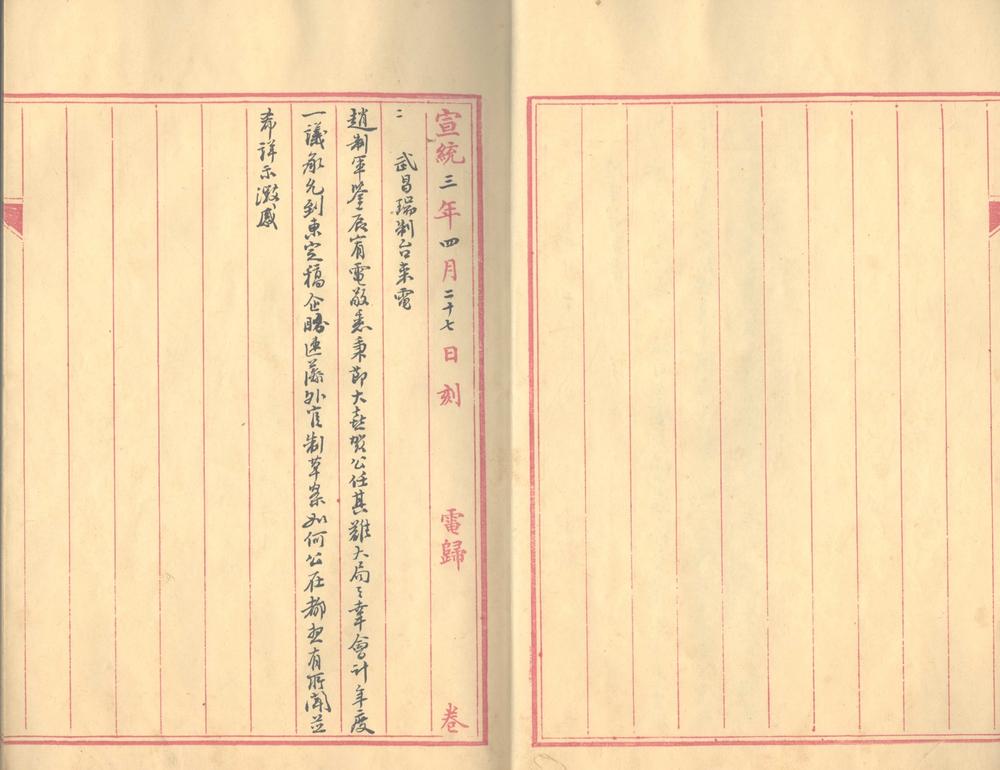 宣統三年四月二十七日刻 電歸 卷
二 武昌瑞制台来電
趙制軍鑒辰宥電敬悉秉節大喜賀公任其難大局之幸會計年度
一議承允到東定稿企盼速藻外官制草案如何公在都必有所聞並
希詳示澂感